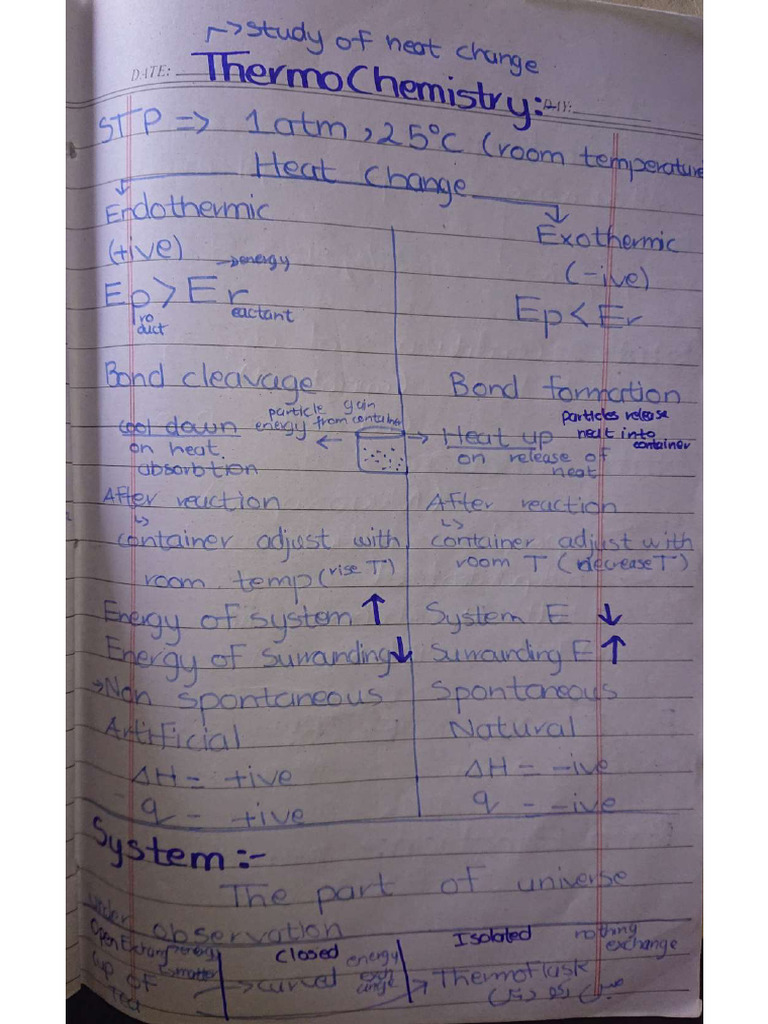 →study of heat change
DATE:
ThermoChemistry:
DAY:
STP => 1 atm, 25°C (room temperature
Heat Change
Endothermic
Exothermic
(+ive)
(-ive)
→energy
Ep > Er
ro
duct
eactant
Ep < Er
Bond cleavage
Bond formation
particle gain
energy from container
particles release
heat into
container
cool down
on heat
absorbtion
Heat up
on release of
heat
After reaction
After reaction
container adjust with
room temp (rise T)
container adjust with
room T (decrease T)
Energy of system ↑
System E ↓
Energy of Surrounding ↓
Surrounding E ↑
→Non spontaneous
Spontaneous
Artificial
Natural
ΔH = +ive
ΔH = -ive
q = +ive
q = -ive
System:-
The part of universe
under observation
Open energy
& matter
cup of
Tea
Closed energy
exch
ange
Isolated nothing
exchange
→ThermoFlask